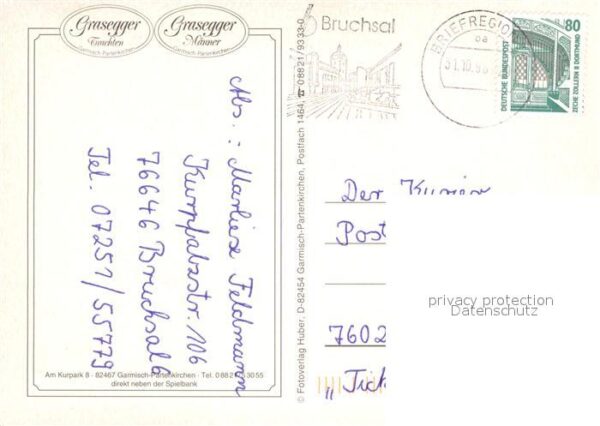 Grasegger
Trachten
Garmisch-Partenkirchen
Grasegger
Männer
Garmisch-Partenkirchen
Abs.: Marliese Feldmann
Kurpfalzstr. 106
76646 Bruchsal 6
Tel. 07251/55779
Am Kurpark 8 · 82467 Garmisch-Partenkirchen · Tel.
direkt neben der Spielbank
© Fotoverlag Huber, D-82454 Garmisch-Partenkirchen, Postfach 1464, ☎ 08821/9333-0
Bruchsal
BRIEFREGION
oa
80
DEUTSCHE BUNDESPOST
ZECHE ZOLLERN II DORTMUND
Der Kurier
Post
7602
privacy protection
Datenschutz